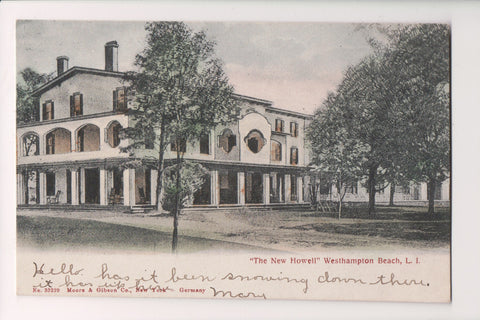 "The New Howell" Westhampton Beach, L. I.
Hello, has it been snowing down there.
it has up here
Mary
No. 39299 Moore & Gibson Co., New York. Germany